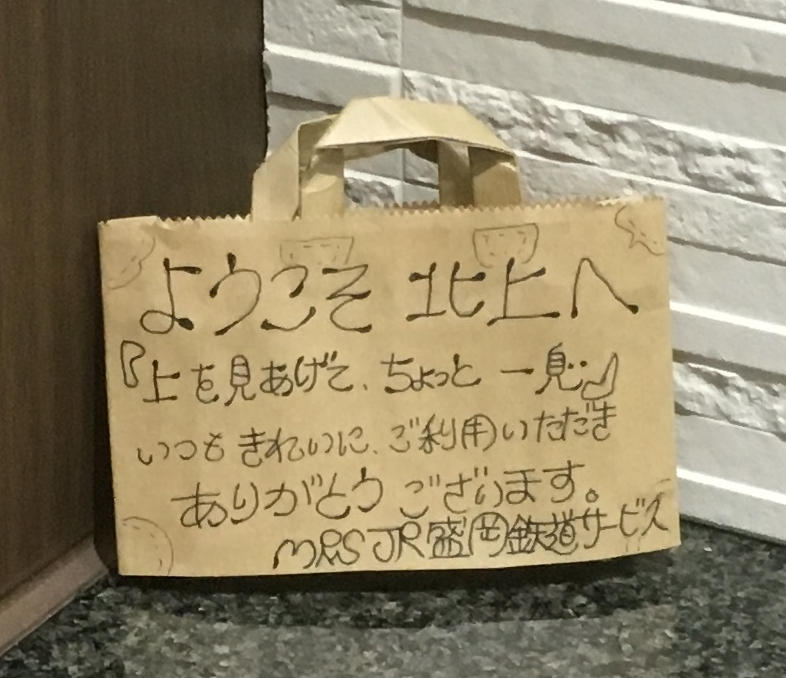 ようこそ 北上へ
『上を見あげて、ちょっと 一息』
いつも きれいに、ご利用いただき
ありがとう ございます。
MRS JR盛岡鉄道サービス